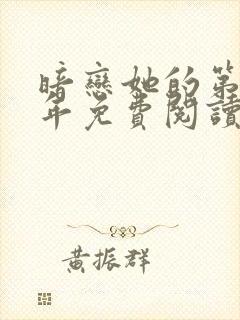 暗戀她的第
年免費閱讀
黃振群